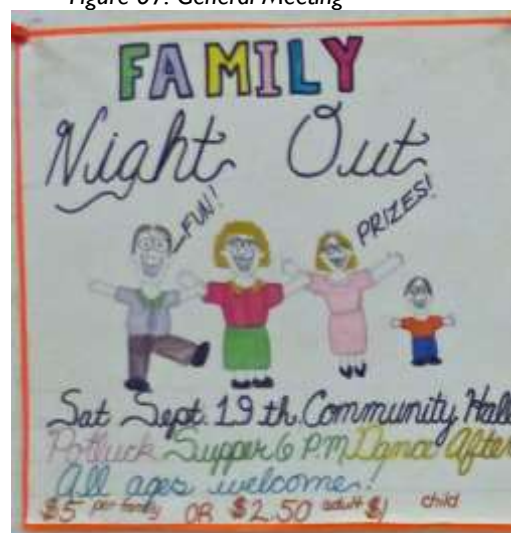 Figure 69: General Meeting
FAMILY
Night Out
FUN!
PRIZES!
Sat Sept. 19th Community Hall
Potluck Supper 6 P.M Dance After
All ages welcome!
$5 per family OR $2.50 adult $1 child